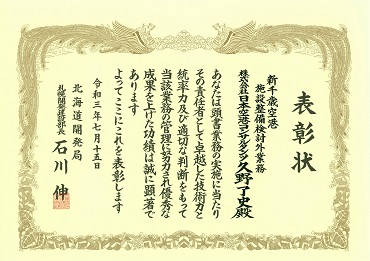 表彰状
新千歳空港
施設整備検討外業務
株式会社日本空港コンサルタンツ久野了史殿
あなたは頭書業務の実施に当たり
その責任者として卓越した技術力と
統率力及び適切な判断をもって
当該業務の管理に努力され優秀な
成果を上げた功績は誠に顕著で
あります
よってここにこれを表彰します
令和三年七月十五日
北海道開発局
札幌開発建設部長
石川伸